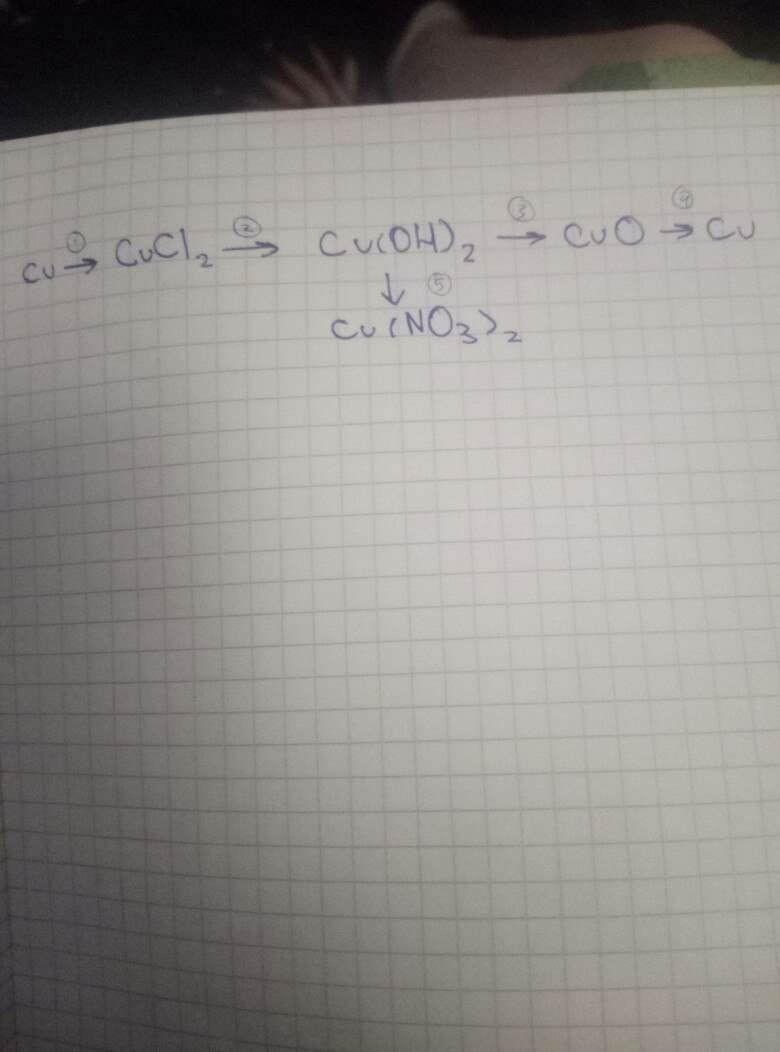 Cu →① CuCl₂ →② Cu(OH)₂ →③ CuO →④ Cu
↓ ⑤
Cu(NO₃)₂